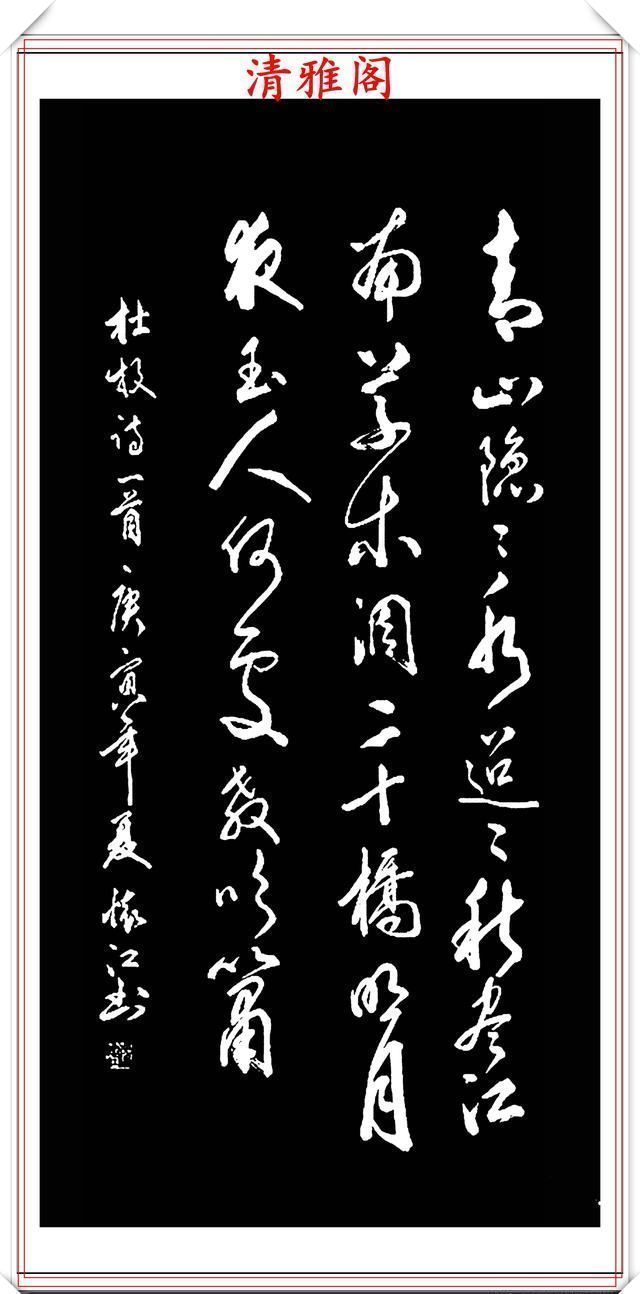 清雅阁
青山隐々水迢々秋尽江
南草未凋二十橋明月
夜玉人何處教吹簫
杜牧诗一首庚寅年夏懷江书